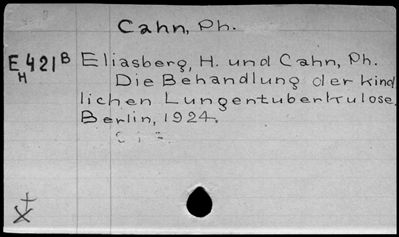 Cahn, Ph.
E 421 B
H
Eliasberg, H. und Cahn, Ph.
Die Behandlung der kind
lichen Lungentuberkulose.
Berlin, 1924.